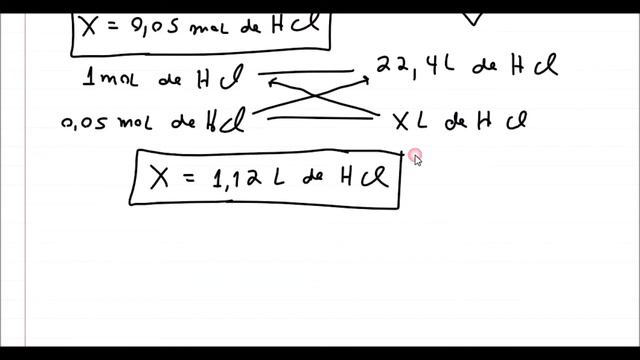 X = 0,05 mol de HCl
1 mol de HCl 22,4 L de HCl
0,05 mol de HCl X L de HCl
X = 1,12 L de HCl